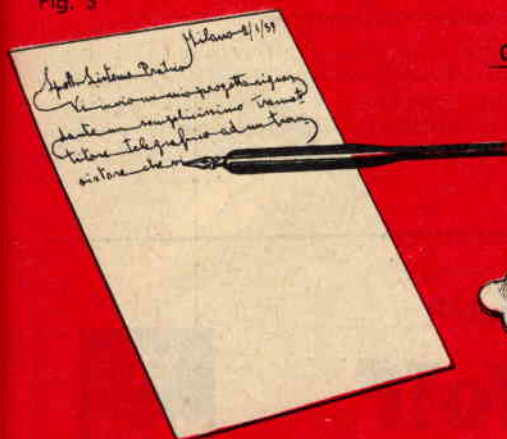 Fig. 3
Milano 2/1/59
Spett. Sistema Pratico
Vi invio un mio progetto riguar
dante un semplicissimo Trasmet
titore telegrafico ad un tran
sistore che vi